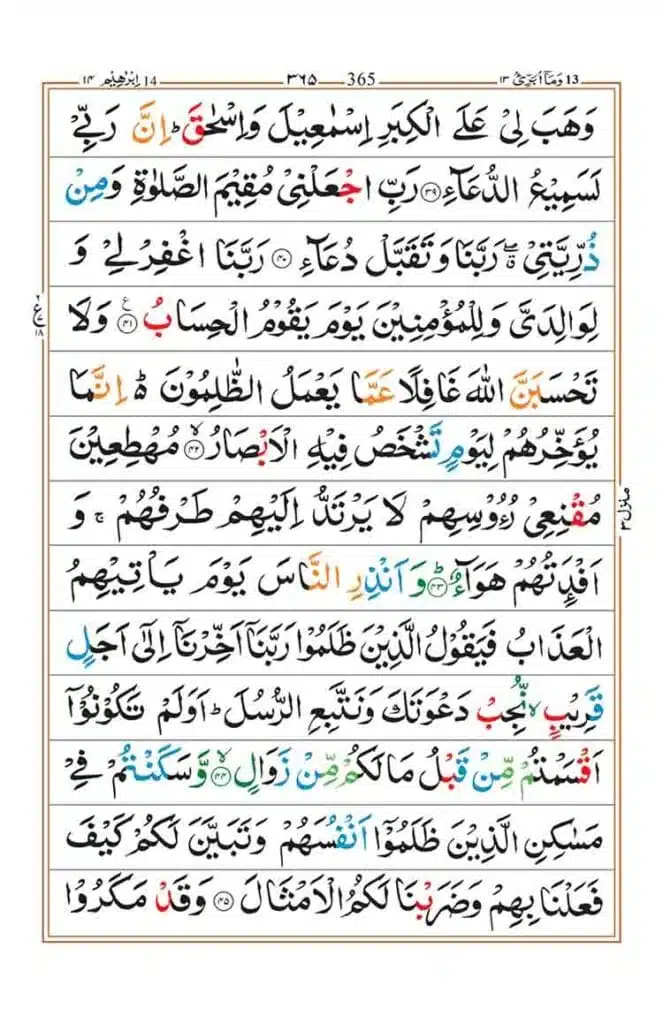 14 اِبْرٰهِيْم ١٤ 365 ٣٦٥ 13 وَمَآ اُبَرِّئُ ١٣
وَهَبَ لِىْ عَلَى الْكِبَرِ اِسْمٰعِيْلَ وَاِسْحٰقَ ؕ اِنَّ رَبِّىْ
لَسَمِيْعُ الدُّعَآءِ ﴿۳۹﴾ رَبِّ اجْعَلْنِىْ مُقِيْمَ الصَّلٰوةِ وَمِنْ
ذُرِّيَّتِىْ ۖ ق رَبَّنَا وَتَقَبَّلْ دُعَآءِ ﴿۴۰﴾ رَبَّنَا اغْفِرْ لِىْ وَ
لِوَالِدَىَّ وَلِلْمُؤْمِنِيْنَ يَوْمَ يَقُوْمُ الْحِسَابُ ﴿۴۱﴾ ع وَلَا
ع ١٨
تَحْسَبَنَّ اللّٰهَ غَافِلًا عَمَّا يَعْمَلُ الظّٰلِمُوْنَ ؕ اِنَّمَا
يُؤَخِّرُهُمْ لِيَوْمٍ تَشْخَصُ فِيْهِ الْاَبْصَارُ ۙ ﴿۴۲﴾ مُهْطِعِيْنَ
مُقْنِعِىْ رُءُوْسِهِمْ لَا يَرْتَدُّ اِلَيْهِمْ طَرْفُهُمْ ۚ وَ
منزل ٣
اَفْـِٕدَتُهُمْ هَوَآءٌ ؕ ﴿۴۳﴾ وَاَنْذِرِ النَّاسَ يَوْمَ يَاْتِيْهِمُ
الْعَذَابُ فَيَقُوْلُ الَّذِيْنَ ظَلَمُوْا رَبَّنَاۤ اَخِّرْنَاۤ اِلٰٓى اَجَلٍ
قَرِيْبٍ ۙ نُّجِبْ دَعْوَتَكَ وَنَتَّبِعِ الرُّسُلَ ؕ اَوَلَمْ تَكُوْنُوْۤا
اَقْسَمْتُمْ مِّنْ قَبْلُ مَا لَكُمْ مِّنْ زَوَالٍ ۙ ﴿۴۴﴾ وَّسَكَنْتُمْ فِىْ
مَسٰكِنِ الَّذِيْنَ ظَلَمُوْۤا اَنْفُسَهُمْ وَتَبَيَّنَ لَكُمْ كَيْفَ
فَعَلْنَا بِهِمْ وَضَرَبْنَا لَكُمُ الْاَمْثَالَ ﴿۴۵﴾ وَقَدْ مَكَرُوْا